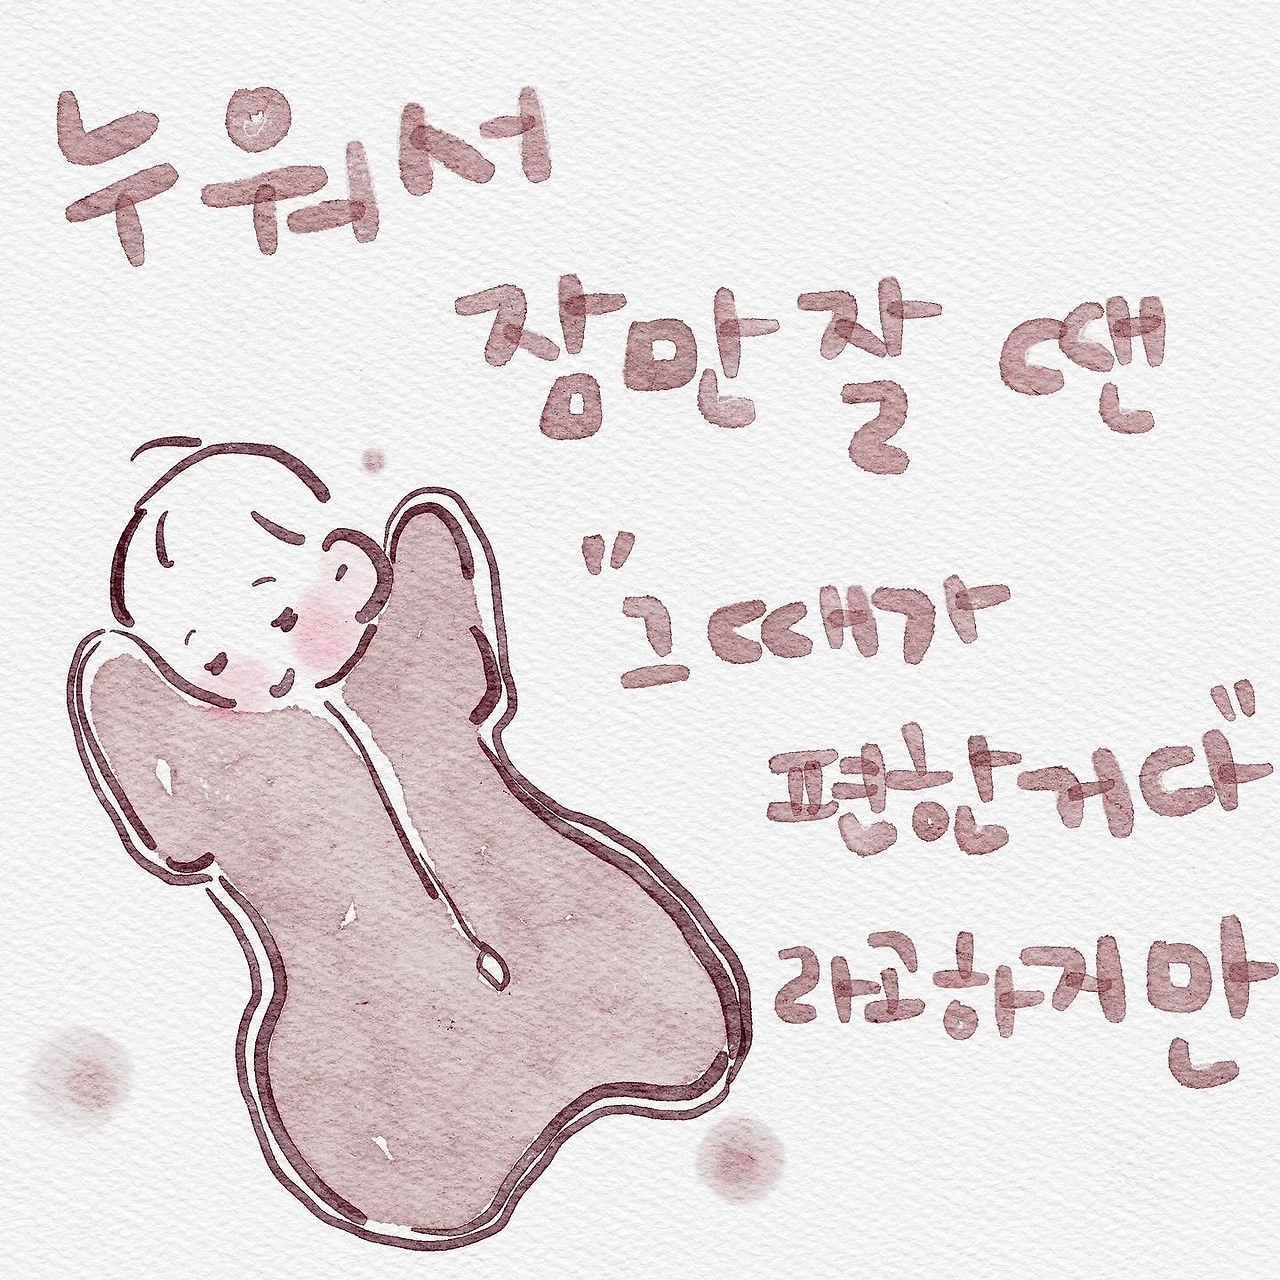 누워서
잠만 잘 땐
"그때가
편한거다"
라고하지만